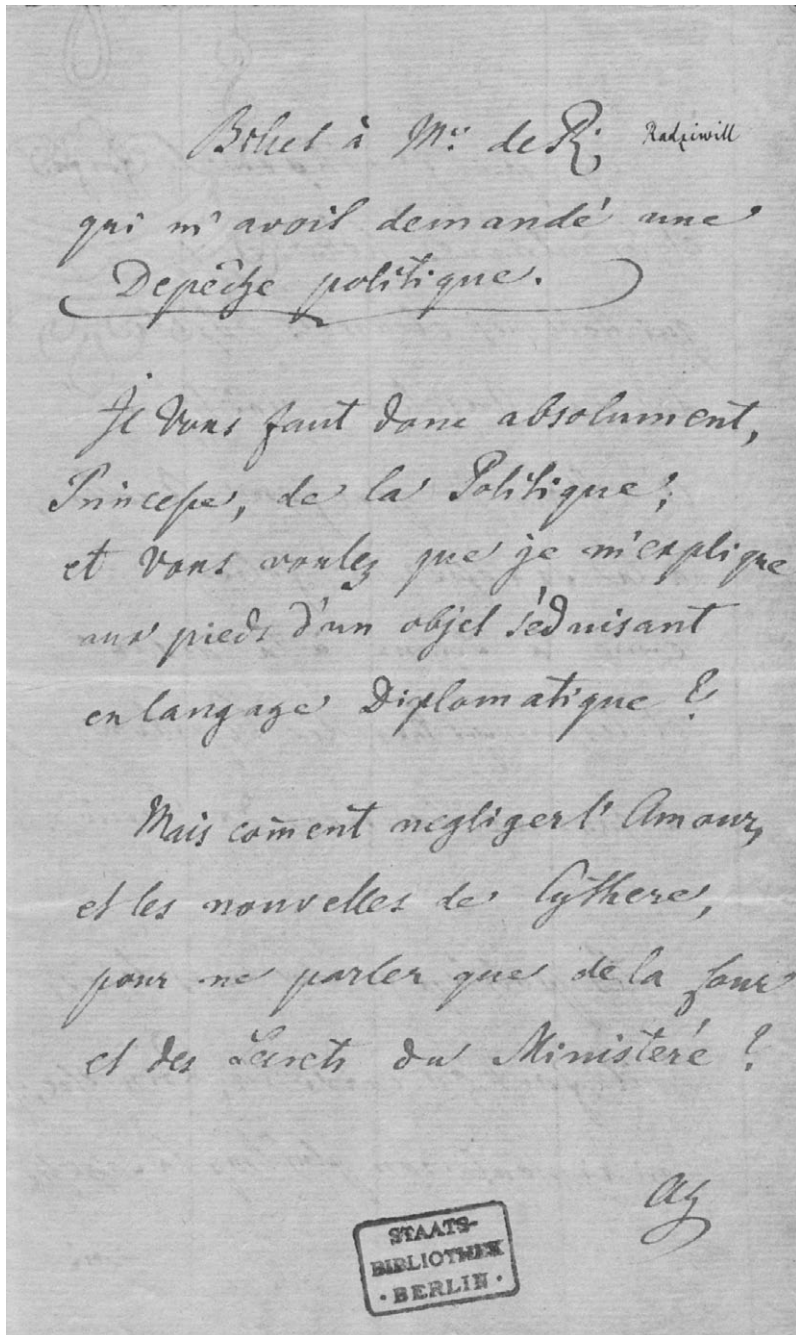 Billet à Mr: de R: Radziwill
qui m'avoit demandé une
Depêche politique.
Il Vous faut donc absolument,
Princesse, de la Politique;
et Vous voulez que je m'explique
aux pieds d'un objet séduisant
en langage Diplomatique?
Mais com̄ent negliger l'Amour,
et les nouvelles de Cythere,
pour ne parler que de la Cour
et des Secrets du Ministère?
STAATS-
BIBLIOTHEK
· BERLIN ·